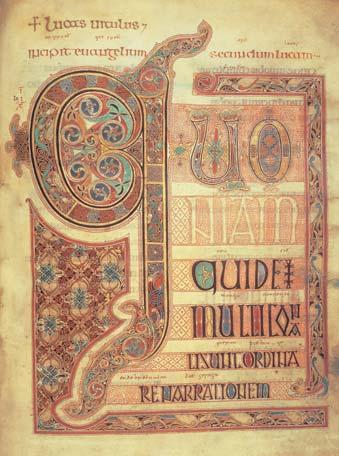 + Lucas vitulus
incipit evangelium secundum lucam
QUO
NIAM
QUIDEM
MULTI CONA
TI SUNT ORDINA
RE NARRATIONEM